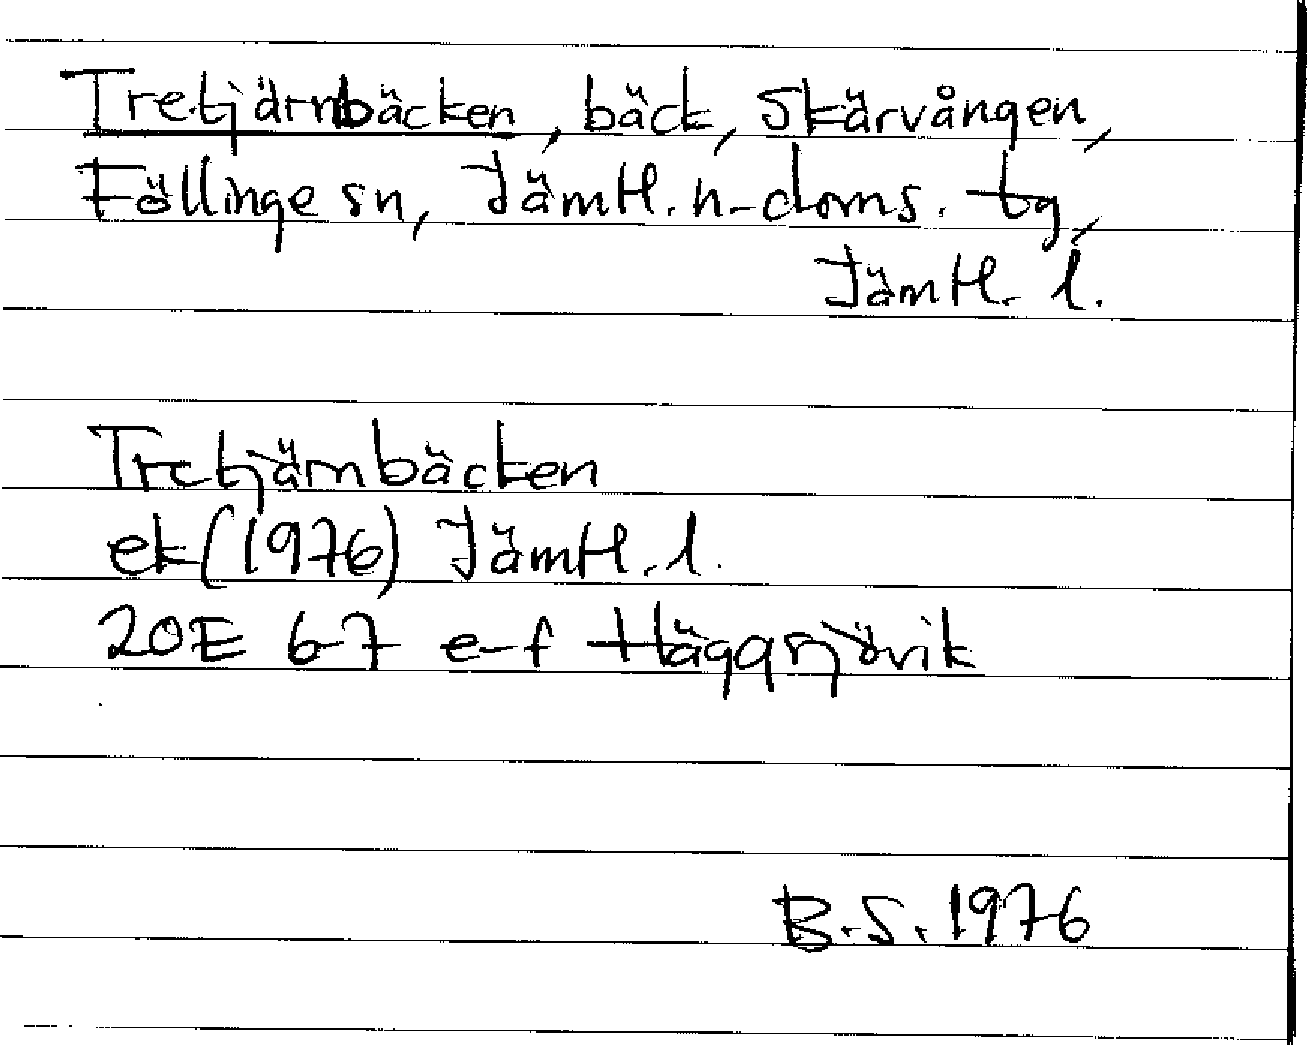 Tretjärnbäcken, bäck, Skärvången,
Föllinge sn, Jämtl. n-doms. tg,
Jämtl. l.
Tretjärnbäcken
ek (1976) Jämtl. l.
20E 6-7 e-f Häggsjövik
B.S. 1976